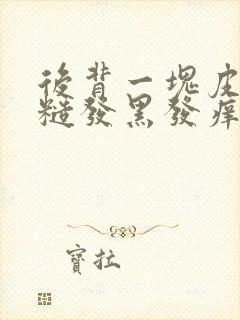 後背一塊皮
糙發黑發痒
寶拉